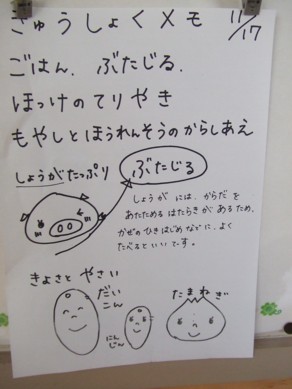 きゅうしょくメモ 11/17
ごはん、ぶたじる、
ほっけのてりやき
もやしとほうれんそうのからしあえ
しょうがたっぷり ぶたじる
しょうがには、からだを
あたためるはたらきがあるため、
かぜのひきはじめなどに、よく
たべるといいです。
きよさと やさい
だいこん
にんじん
たまねぎ